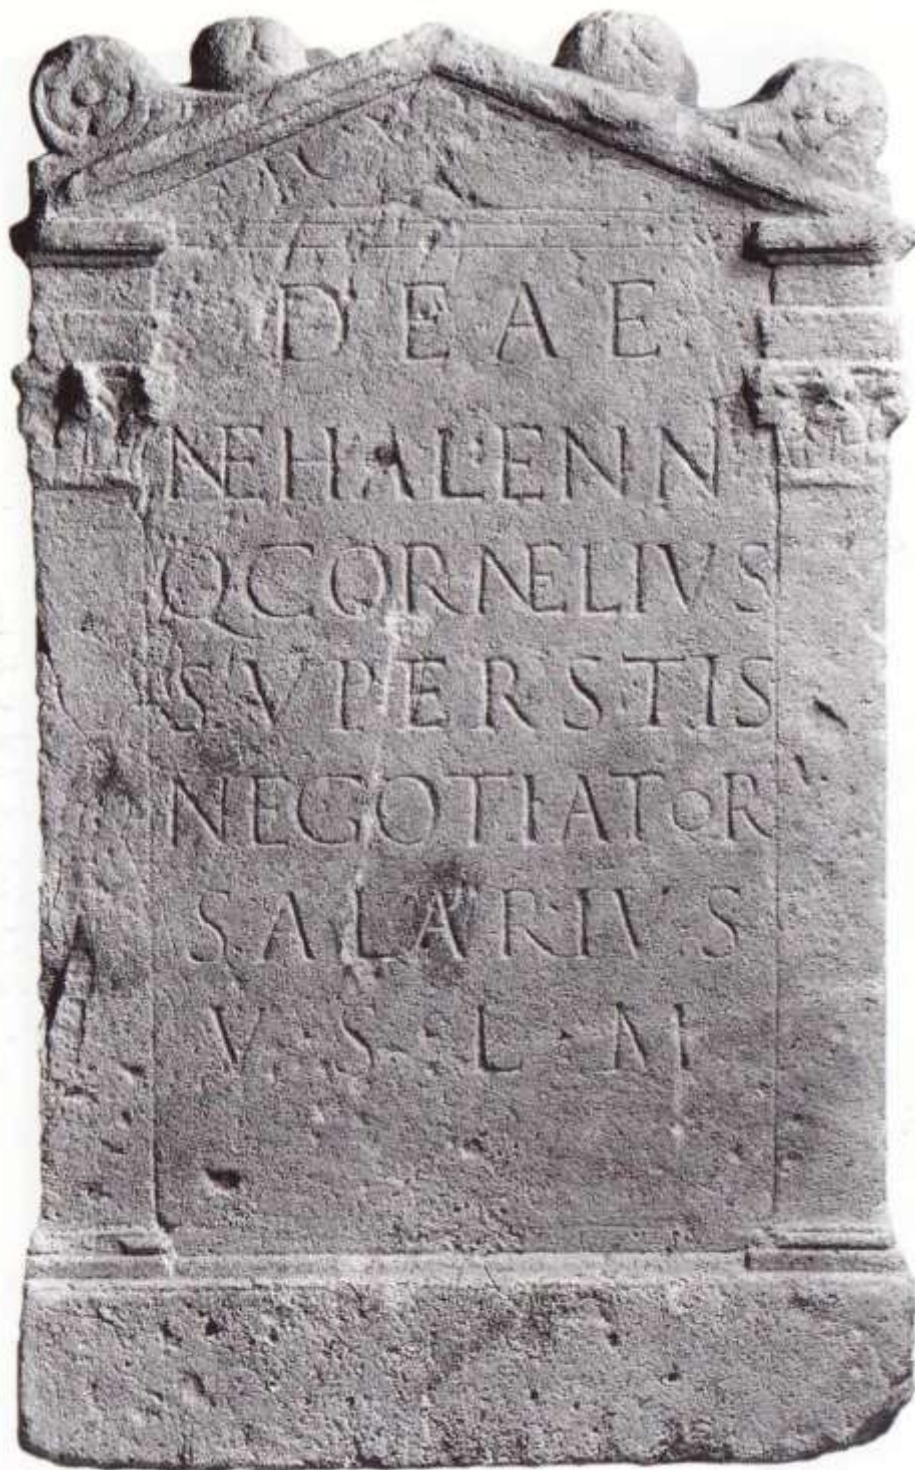 DEAE
NEHALENN
Q CORNELIVS
SVPERSTIS
NEGOTIATOR
SALARIVS
V·S·L·M